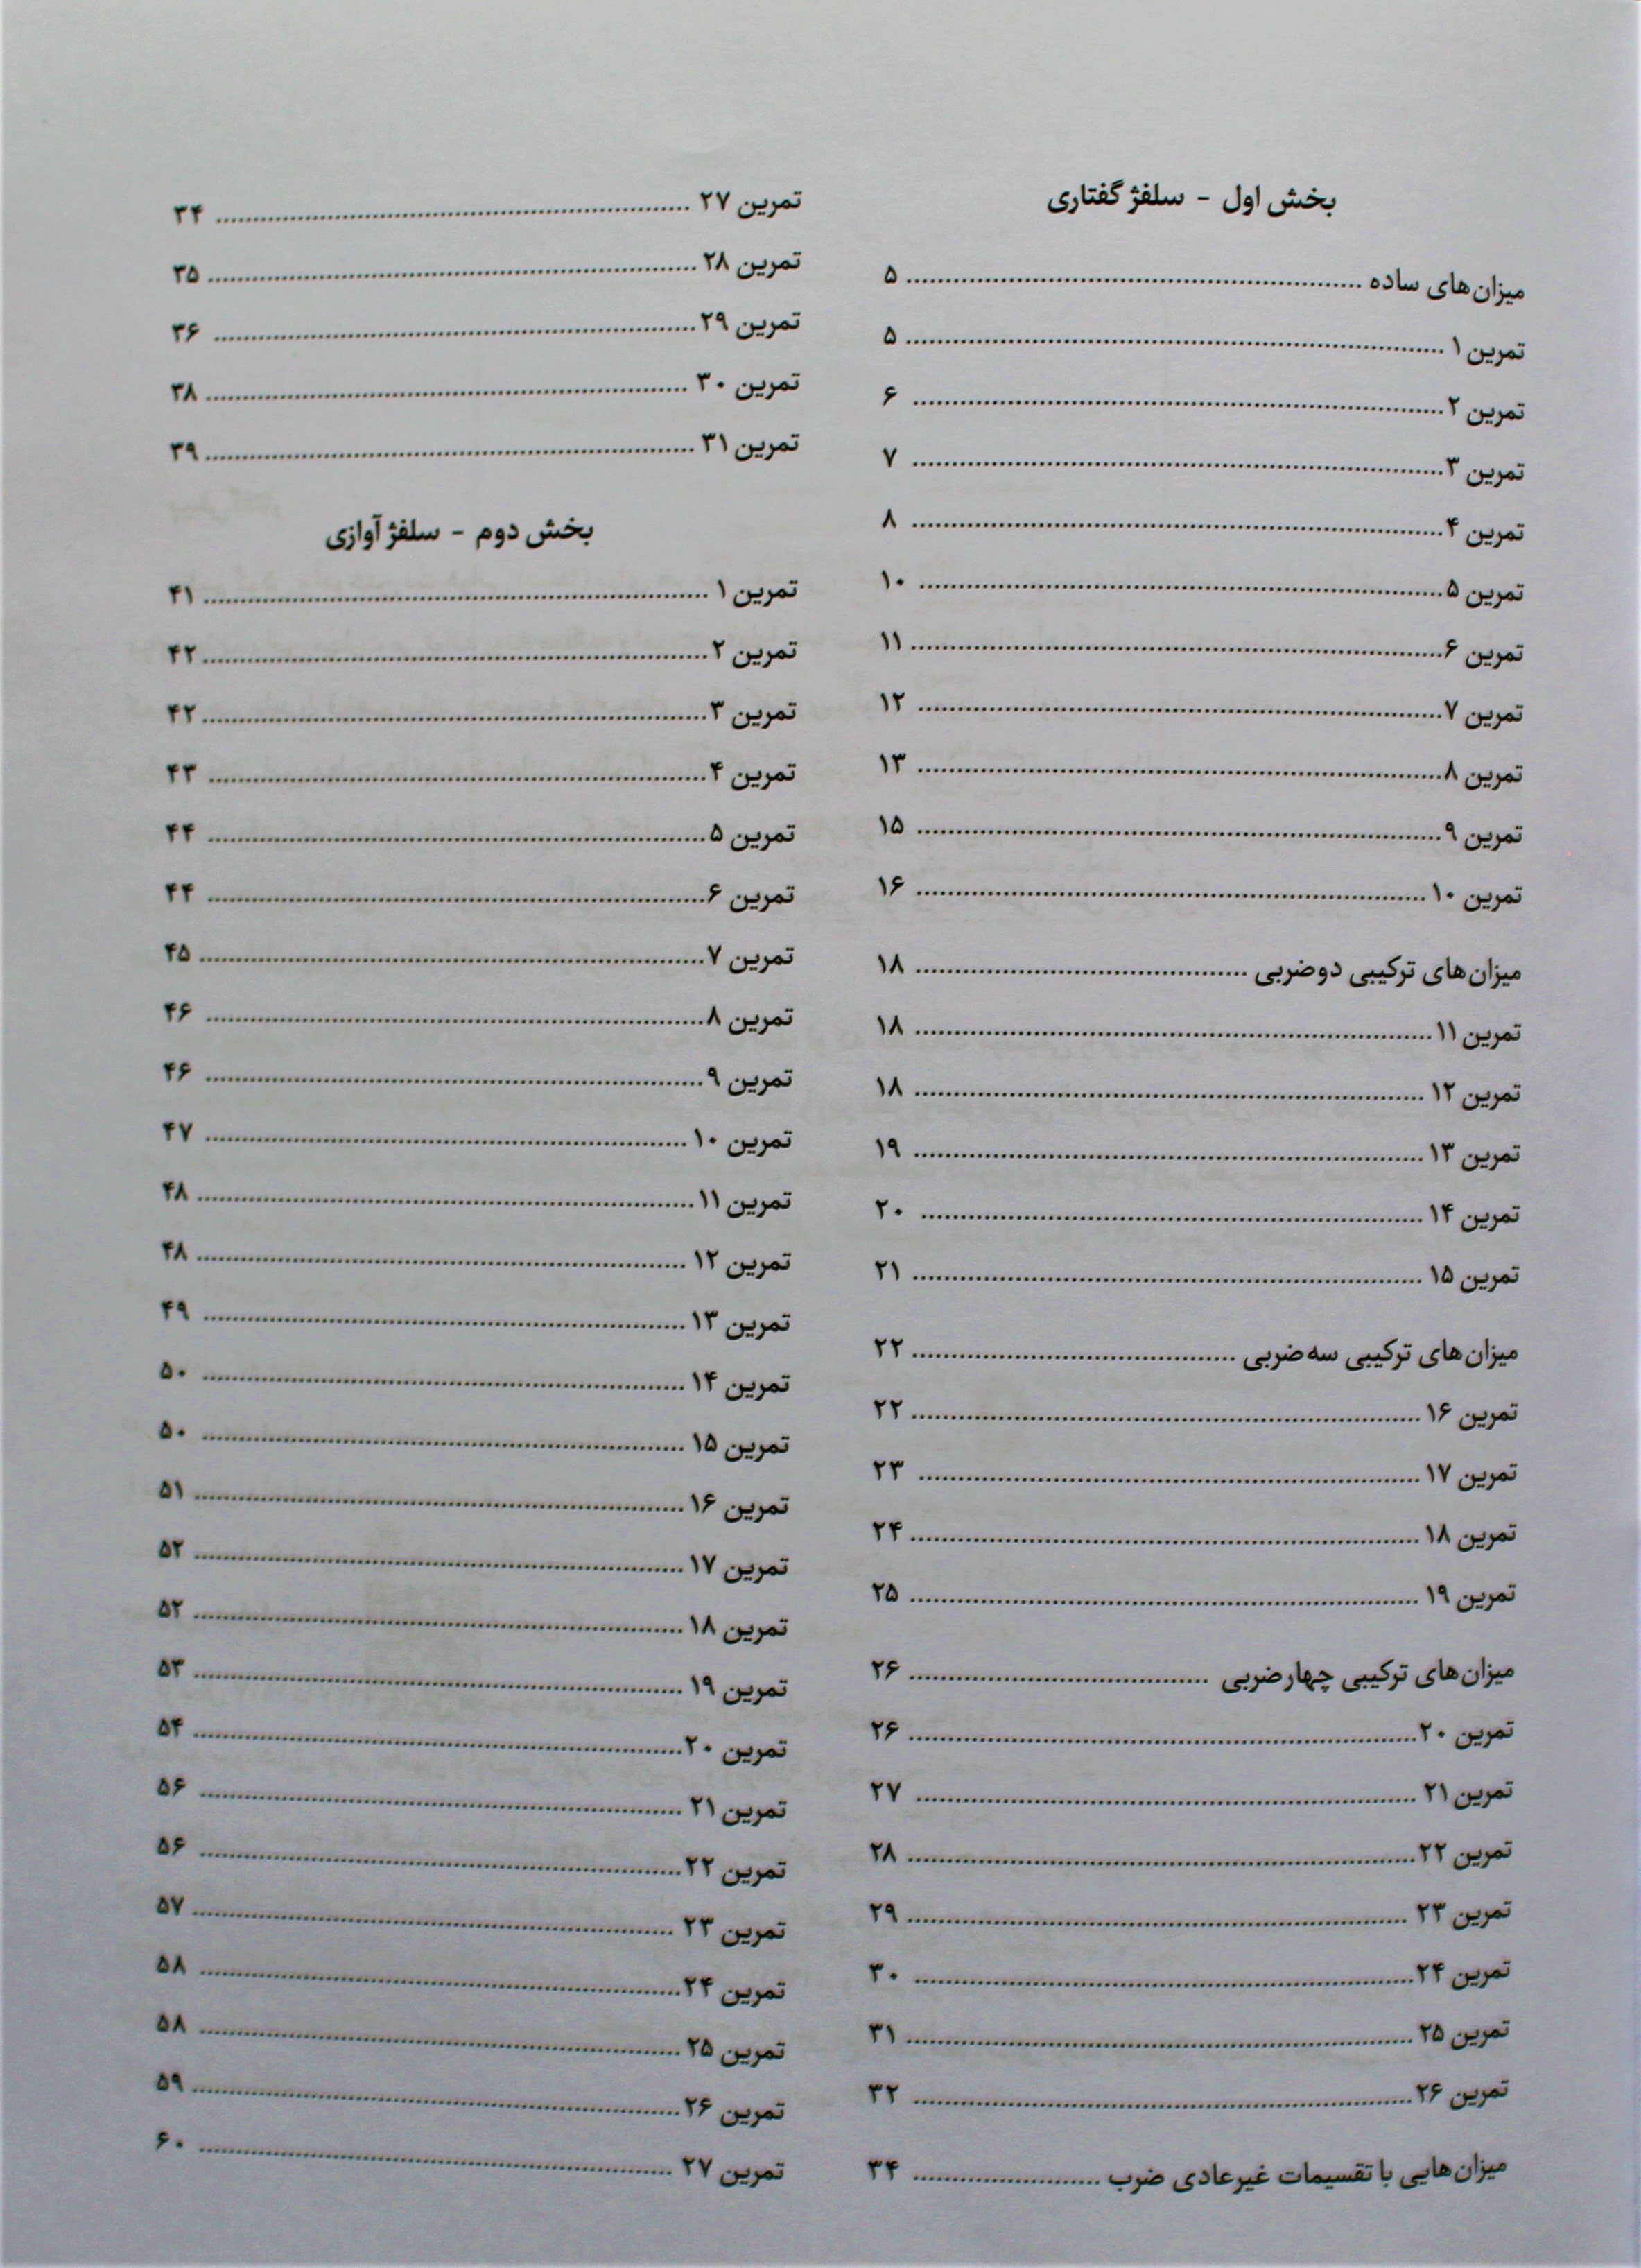 بخش اول - سلفژ گفتاری
میزان‌های ساده ........ ۵
تمرین ۱ ........ ۵
تمرین ۲ ........ ۶
تمرین ۳ ........ ۷
تمرین ۴ ........ ۸
تمرین ۵ ........ ۱۰
تمرین ۶ ........ ۱۱
تمرین ۷ ........ ۱۲
تمرین ۸ ........ ۱۳
تمرین ۹ ........ ۱۵
تمرین ۱۰ ........ ۱۶
میزان‌های ترکیبی دوضربی ........ ۱۸
تمرین ۱۱ ........ ۱۸
تمرین ۱۲ ........ ۱۸
تمرین ۱۳ ........ ۱۹
تمرین ۱۴ ........ ۲۰
تمرین ۱۵ ........ ۲۱
میزان‌های ترکیبی سه‌ضربی ........ ۲۲
تمرین ۱۶ ........ ۲۲
تمرین ۱۷ ........ ۲۳
تمرین ۱۸ ........ ۲۴
تمرین ۱۹ ........ ۲۵
میزان‌های ترکیبی چهارضربی ........ ۲۶
تمرین ۲۰ ........ ۲۶
تمرین ۲۱ ........ ۲۷
تمرین ۲۲ ........ ۲۸
تمرین ۲۳ ........ ۲۹
تمرین ۲۴ ........ ۳۰
تمرین ۲۵ ........ ۳۱
تمرین ۲۶ ........ ۳۲
میزان‌هایی با تقسیمات غیرعادی ضرب ........ ۳۴
تمرین ۲۷ ........ ۳۴
تمرین ۲۸ ........ ۳۵
تمرین ۲۹ ........ ۳۶
تمرین ۳۰ ........ ۳۸
تمرین ۳۱ ........ ۳۹
بخش دوم - سلفژ آوازی
تمرین ۱ ........ ۴۱
تمرین ۲ ........ ۴۲
تمرین ۳ ........ ۴۲
تمرین ۴ ........ ۴۳
تمرین ۵ ........ ۴۴
تمرین ۶ ........ ۴۴
تمرین ۷ ........ ۴۵
تمرین ۸ ........ ۴۶
تمرین ۹ ........ ۴۶
تمرین ۱۰ ........ ۴۷
تمرین ۱۱ ........ ۴۸
تمرین ۱۲ ........ ۴۸
تمرین ۱۳ ........ ۴۹
تمرین ۱۴ ........ ۵۰
تمرین ۱۵ ........ ۵۰
تمرین ۱۶ ........ ۵۱
تمرین ۱۷ ........ ۵۲
تمرین ۱۸ ........ ۵۲
تمرین ۱۹ ........ ۵۳
تمرین ۲۰ ........ ۵۴
تمرین ۲۱ ........ ۵۶
تمرین ۲۲ ........ ۵۶
تمرین ۲۳ ........ ۵۷
تمرین ۲۴ ........ ۵۸
تمرین ۲۵ ........ ۵۸
تمرین ۲۶ ........ ۵۹
تمرین ۲۷ ........ ۶۰